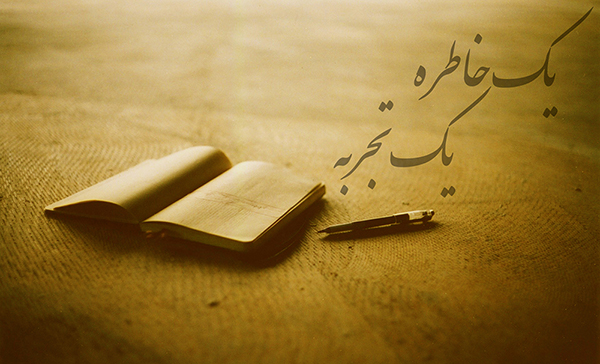 یک خاطره
یک تجربه